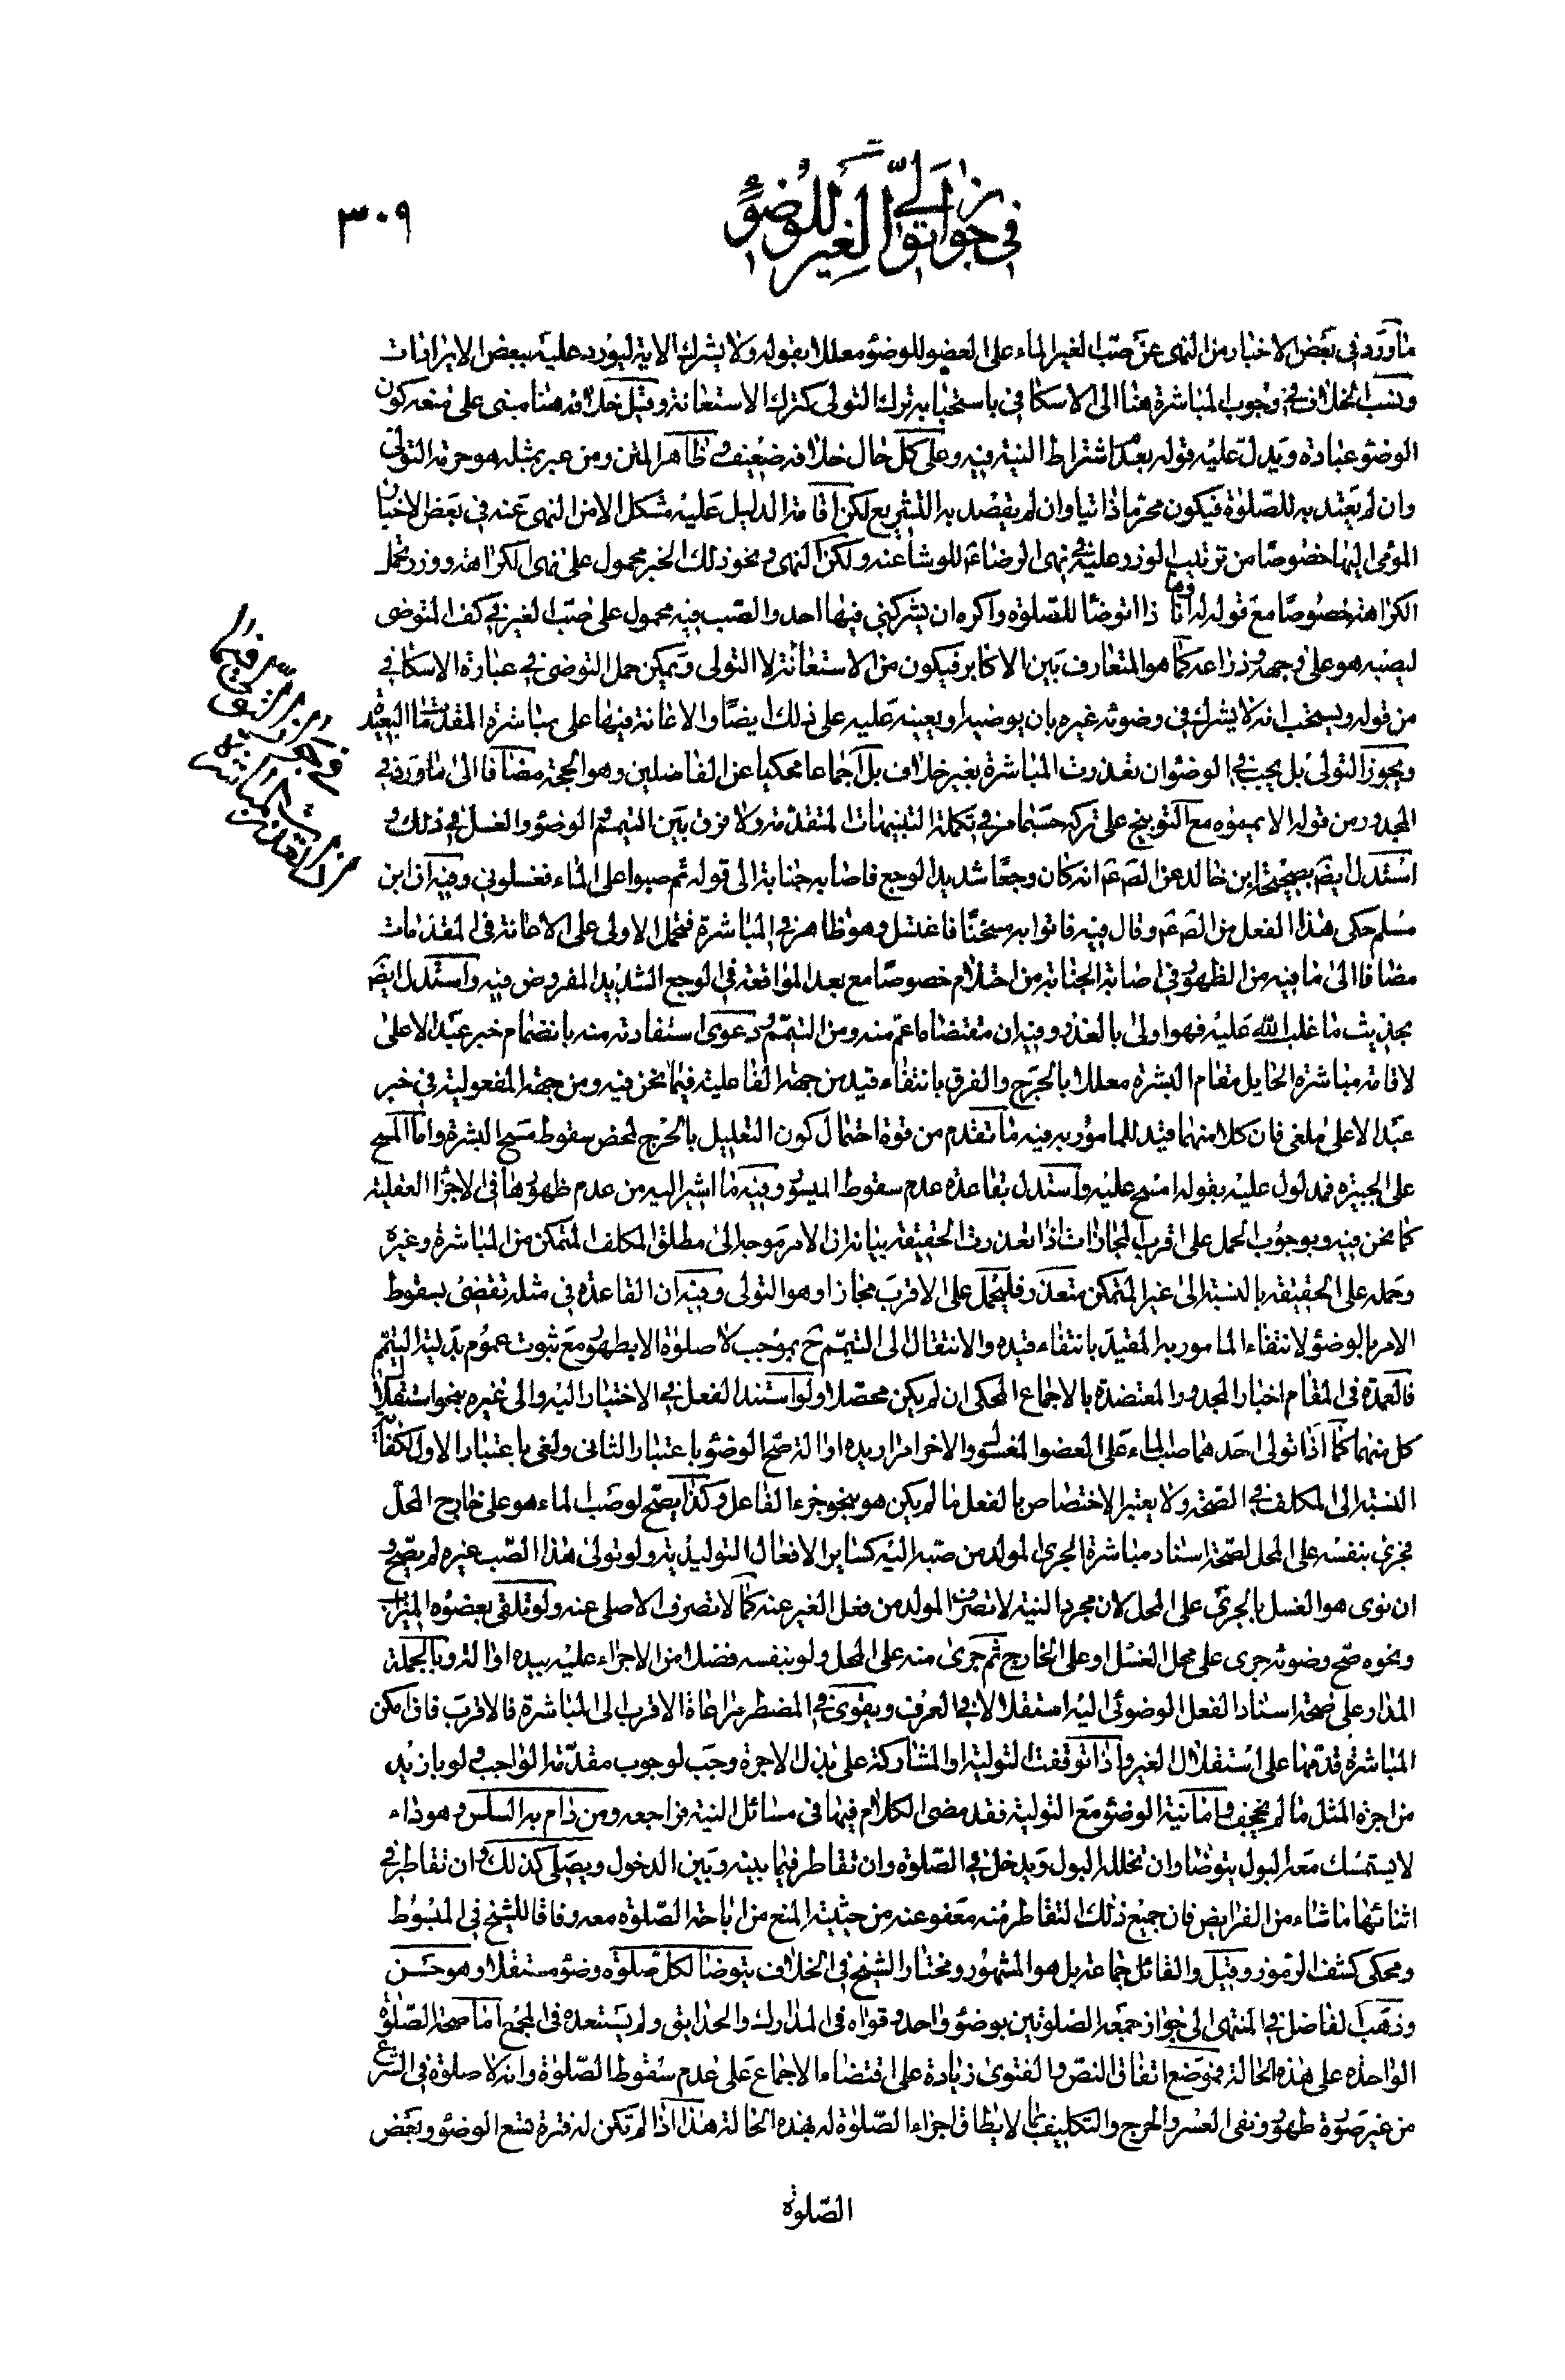 في جواز تولي الغير للوضوء
٣٠٩
ما ورد في بعض الاخبار من النهى عن صبّ الغير الماء على العضو للوضوء معللا بقوله ولا يشرك الاية ليورد عليه ببعض الايرادات
ونسب الخلاف في وجوب المباشرة هنا الى الاسكافي باستحبابه ترك التولى كترك الاستعانة وقيل خلافه هنا مبنى على منعه كون
الوضوء عبادة ويدل عليه قوله بعدم اشتراط النية فيه وعلى كل حال خلافه ضعيف وظاهر المتن ومن عبر بمثله هو حرمة التولى
وان لم يعتد به للصّلوة فيكون محرّما ذاتيا وان لم يقصد به التشريع لكن اقامة الدليل عليه مشكل الا من النهى عنه في بعض الاخبار
المؤمى اليها خصوصًا من ترتيب الوزر عليه في نهى الرضا ع للوشا عنه ولكن النهى في نحو ذلك الخبر محمول على نهى الكراهة ووزر تحمل
الكراهة خصوصًا مع قوله له وها انا ذا اتوضأ للصّلوة واكره ان يشركني فيها احد والصّب فيه محمول على صبّ الغير في كف المتوضى
ليصبه هو على وجهه وذراعه كما هو المتعارف بين الاكابر فيكون من الاستعانة لا التولى ويمكن حمل التوضى في عبارة الاسكافي
من قوله ويستحب انه لا يشرك في وضوئه غيره بان يوضيه او يعينه عليه على ذلك ايضًا والاعانة فيها على مباشرة المقدمات البعيدة
ويجوز التولى بل يجب في الوضوء ان تعذرت المباشرة بغير خلاف بل اجماعا محكيا عن الفاضلين وهو الحجة مضافا الى ما ورد في
المجدور من قوله الا يمموه مع التوبيخ على تركه حسبما مر في تكملة التنبيهات المتقدمة ولا فرق بين التيمم والوضوء والغسل في ذلك و
استدل ايضَ بصحيحة ابن خالد عن الصَ عَ انه كان وجعًا شديد الوجع فاصابه جنابة الى قوله ثم صبوا على الماء فغسلوني وفيه ان ابن
مسلم حكى هذا الفعل من الصَ عَ وقال فيه فاتوا به مسخنًا فاغتسل وهو ظاهر في المباشرة فتحمل الاولى على الاعانة في المقدمات
مضافا الى ما فيه من الظهور في اصابة الجنابة من احتلام خصوصًا مع بعد المواقعة في الوجع الشديد المفروض فيه واستدل ايضَ
بحديث ما غلب الله عليه فهو اولى بالعذر وفيه ان مقتضاه اعم منه ومن التيمّم ودعوى استفادته منه بانضمام خبر عبد الاعلى
لاقامة مباشرة الحايل مقام البشرة معللا بالحرج والفرق بانتفاء قيد من جهة الفاعلية فيما نحن فيه ومن جهة المفعولية في خبر
عبد الاعلى ملغى فان كلا منهما قيد للمامور به فيه ما تقدم من قوة احتمال كون التعليل بالحرج لمحض سقوط مسح البشرة واما المسح
على الجبيرة فمدلول عليه بقوله امسح عليه واستدل بقاعدة عدم سقوط الميسور وفيه ما اشير اليه من عدم ظهورها في الاجزاء العقلية
كما نحن فيه وبوجوب الحمل على اقرب المجازات اذا تعذرت الحقيقة بيانه ان الامر موجه الى مطلق المكلف المتمكن من المباشرة وغيره
وحمله على الحقيقة بالنسبة الى غير المتمكن متعذر فليحمل على الاقرب مجازا وهو التولى وفيه ان القاعدة في مثله تقضى بسقوط
الامر بالوضوء لانتفاء المامور به المقيد بانتفاء قيده والانتقال الى التيمّم حَ بموجب لا صلوة الا بطهور مع ثبوت عموم بدلية التيمّم
فالعمدة في المقام اخبار المجدور المعتضدة بالاجماع المحكى ان لم يكن محصّلا ولو استند الفعل في الاختيار اليه والى غيره بنحو استقلال
كل منهما كما اذا تولى احدهما صب الماء على العضو المغسول والاخر امرار يده او الة صحّ الوضوء باعتبار الثانى ولغى باعتبار الاول لكفاية
النسبة الى المكلف في الصّحة ولا يعتبر الاختصاص بالفعل ما لم يكن هو بنحو جزء الفاعل وكذا يصح لو صب الماء هو على خارج المحلّ
فجرى بنفسه على المحل لصّحة اسناد مباشرة الجرى المولد من صبه اليه كساير الافعال التوليدية ولو تولى هذا الصّب غيره لم يصح و
ان نوى هو الغسل بالجرى على المحل لان مجرد النية لا تصرف المولد من فعل الغير عنه كما لا تصرف الاصلى عنه ولو تلقى بعضوه الميزاب
ونحوه صحّ وضوئه جرى على محل الغسل او على الخارج ثم جرى منه على المحل ولو بنفسه فضلا من الاجراء عليه بيده او الة وبالجملة
المدار على صحة اسناد الفعل الوضوئى اليه استقلالا في العرف ويقوى في المضطر مراعاة الاقرب الى المباشرة فالاقرب فان امكن
المباشرة قدمها على استقلال الغير واذا توقفت التولية او المشاركة على بذل الاجرة وجب لوجوب مقدّمة الواجب ولو بازيد
من اجرة المثل ما لم يجحف واما نية الوضوء مع التولية فقد مضى الكلام فيها في مسائل النية فراجعه ومن دام به السلس وهو داء
لا يستمسك معه البول يتوضأ وان تخلله البول ويدخل في الصّلوة وان تقاطر فيما بينه وبين الدخول ويصلى كذلك وان تقاطر في
اثنائها ما شاء من الفرايض فان جميع ذلك التقاطر منه معفو عنه من حيثية المنع من اباحة الصّلوة معه وفاقا للشيخ في المبسوط
ومحكى كشف الرموز وقيل والقائل جماعة بل هو المشهور ومختار الشيخ في الخلاف يتوضأ لكل صّلوة وضوء مستقلا وهو حسن
وذهب الفاضل في المنتهى الى جواز جمعه الصّلوتين بوضوء واحد وقواه في المدارك والحدائق ولم يستبعده في المجمع اما صحة الصّلوة
الواحدة على هذه الحالة فموضع اتفاق النصّ والفتوى زيادة على اقتضاء الاجماع على عدم سقوط الصّلوة وانه لا صلوة في الشرع
من غير صورة طهور ونفى العسر والحرج والتكليف بما لا يطاق اجزاء الصّلوة له بهذه الحالة هذا اذا لم تكن له فترة تسع الوضوء وبعض
الصّلوة